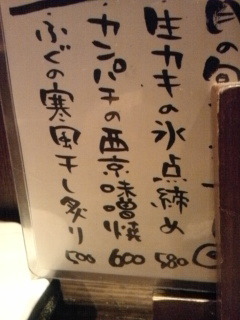 生カキの氷点締め 580
カンパチの西京味噌焼 600
ふぐの寒風干し炙り 500